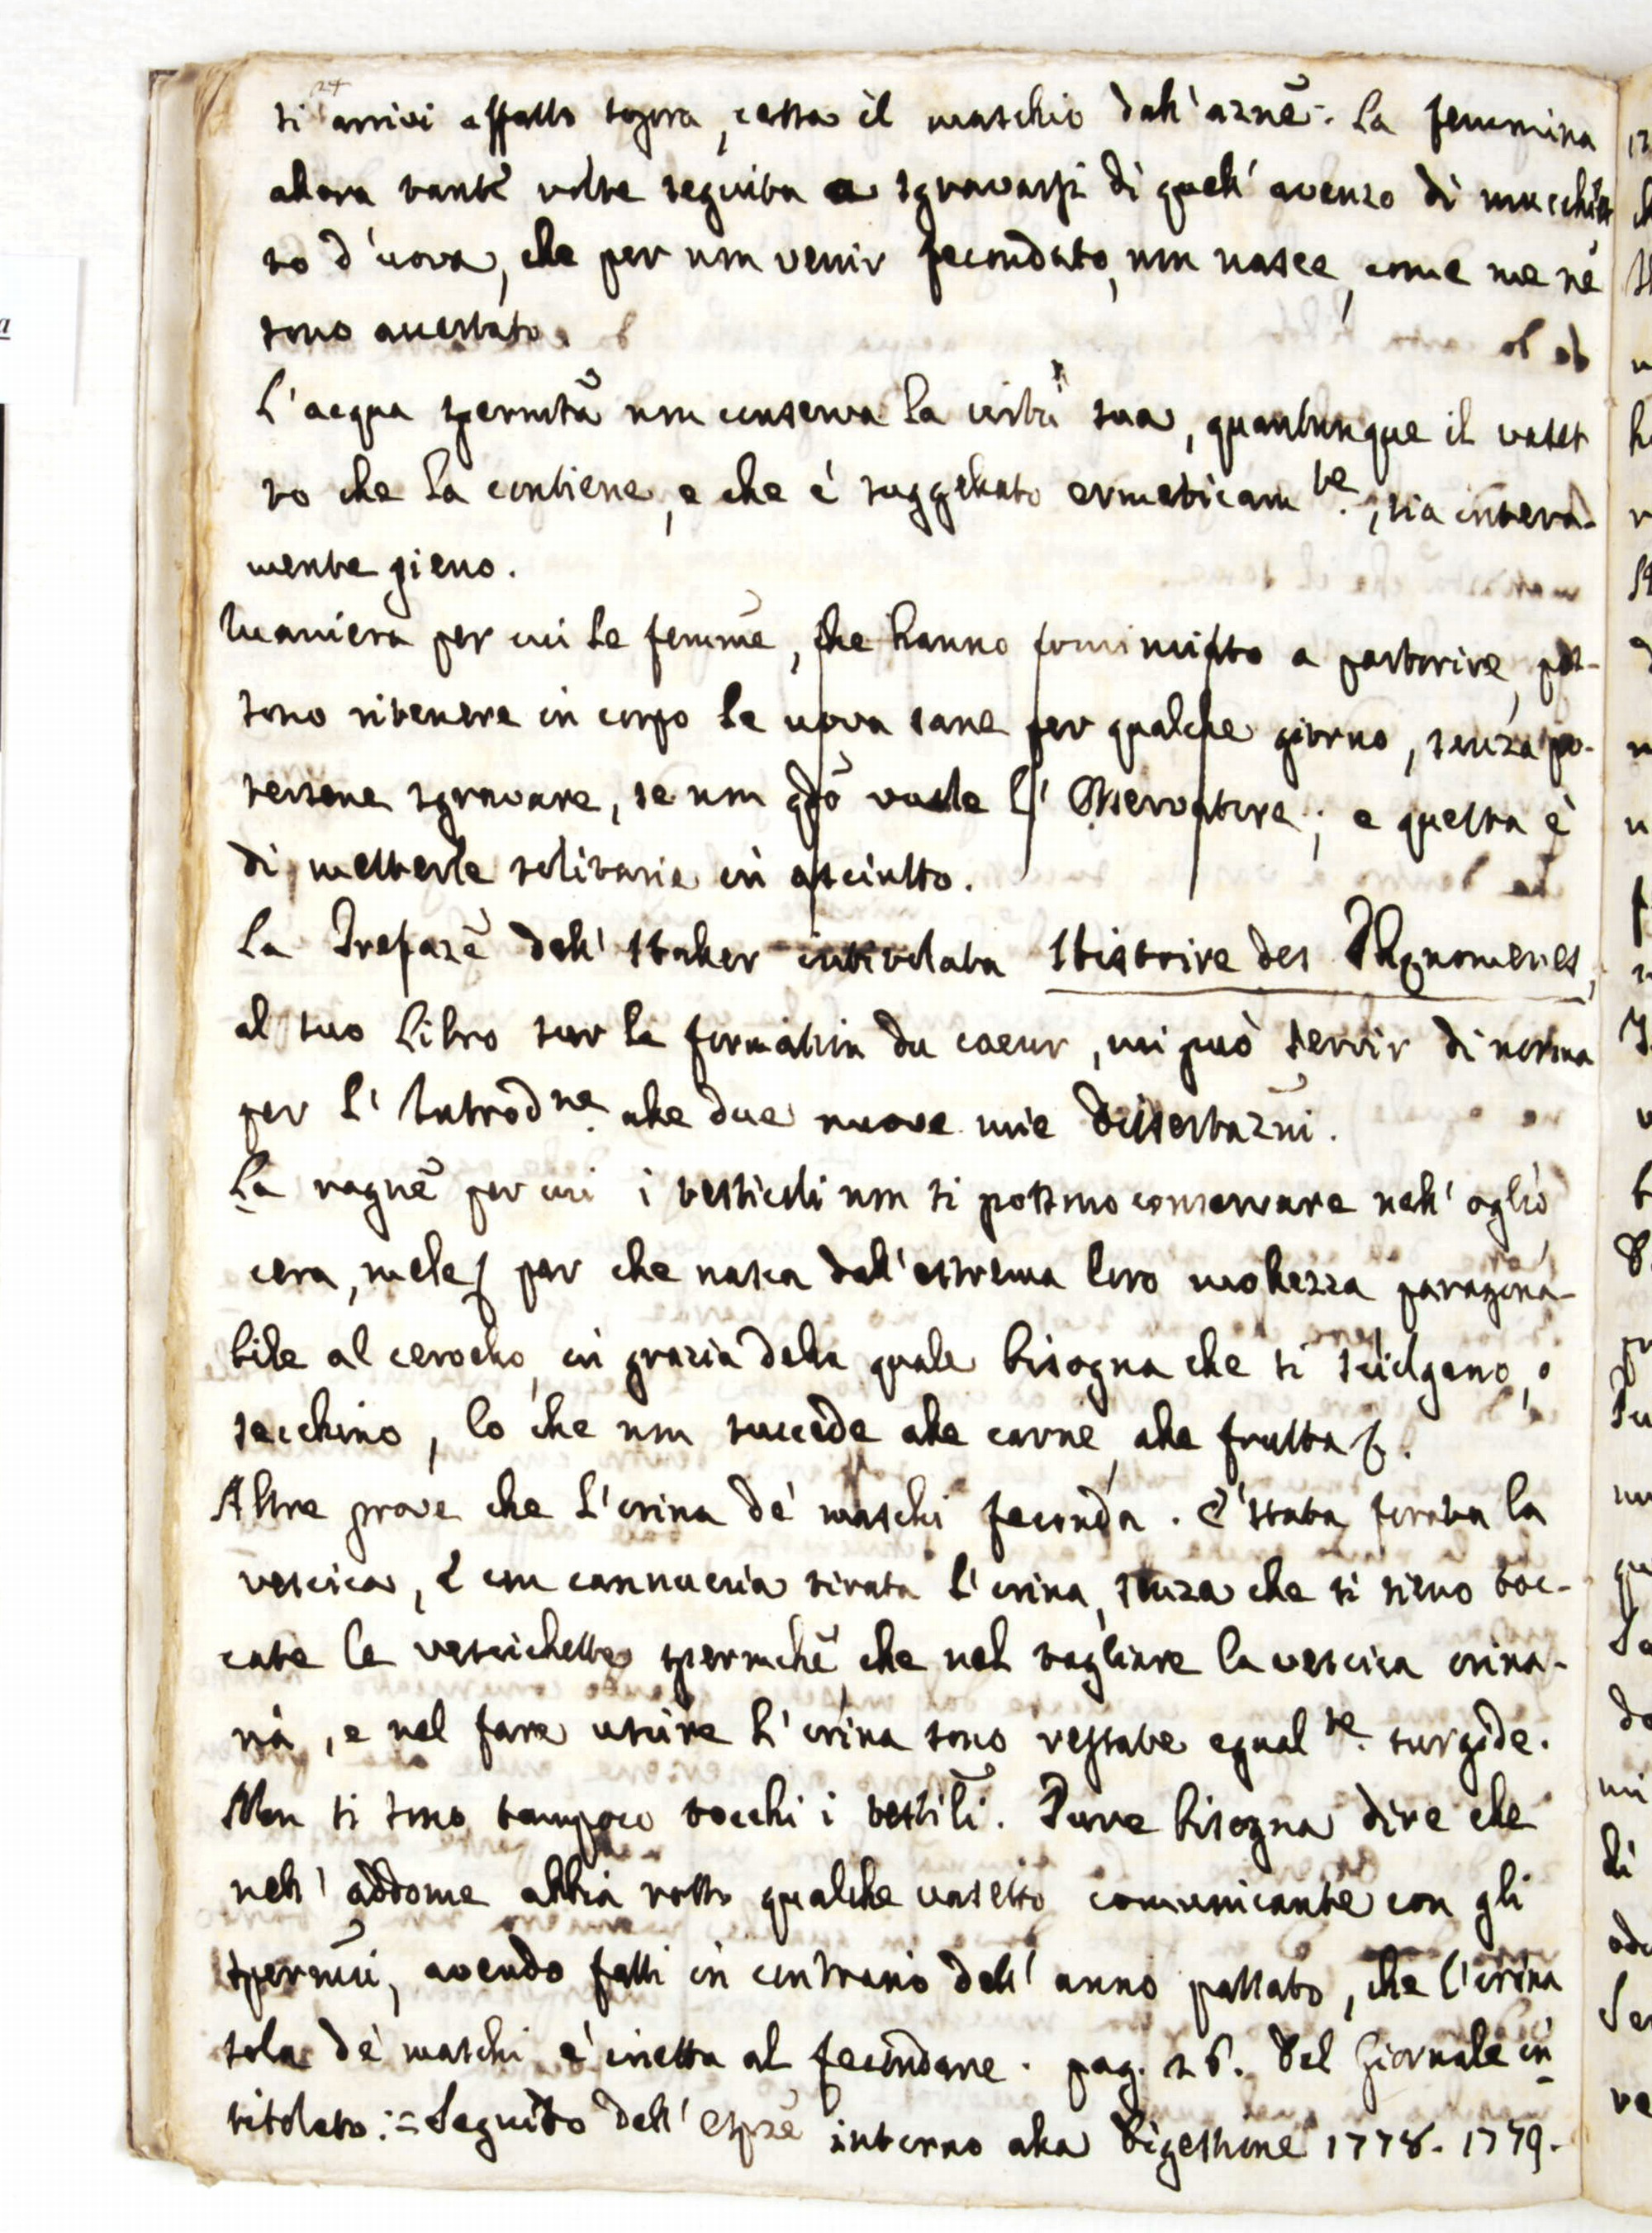 24
si arrivi affatto sopra, cessa il maschio dall' azne. La femmina
allora tante volte seguita a sgravarsi di quell' avenzo di mucchiet
to d'uova, che per non venir fecondato, non nasce, come me ne
sono accertato.
L'acqua spermta non conserva la virtù sua, quantunque il vaset
to che la contiene, e che è suggellato ermeticam te., sia intera-
mente pieno.
Maniera per cui le femme, che hanno cominciato a partorire, pos-
sono ritenere in corpo le uova sane per qualche giorno, senza po-
tersene sgravare, se non qdo vuole l' Osservatore; e questa è
di metterle solitarie in asciutto.
La Prefaze dell' Haller intitolata Histoire des Phenomenes,
al suo Libro sur la formation du coeur, mi può servir di norma
per l' Introd ne. alle due nuove mie Dissertazni.
La ragne per cui i testicoli non si possono conservare nell' oglio,
cera, mele & par che nasca dall' estrema loro mollezza paragona-
bile al cerotto, in grazia della quale bisogna che si sciolgano, o
secchino, lo che non succede alle carne, alle frutta &.
Altre prove che l'orina de' maschi feconda. E' stata forata la
vescica, e con cannuccia tirata l'orina, senza che si sieno toc-
cate le vescichette spermche, che nel tagliare la vescica orina-
ria, e nel fare uscire l'orina sono restate egual te. turgide.
Non si sono tampoco tocchi i testili. Pure bisogna dire che
nell' addome abbia rotto qualche vasetto comunicante con gli
spermci, avendo fatti in contrario dell' anno passato, che l'orina
sola de' maschi è inetta al fecondare. pag. 26. Del Giornale in
titolato: = Seguito dell' Espze intorno alla Digestione 1778. 1779.